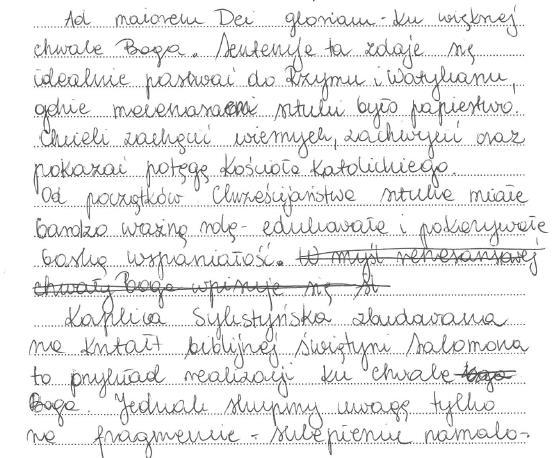 Ad maiorem Dei gloriam - ku większej
chwale Boga. Sentencja ta zdaje się
idealnie pasować do Rzymu i Watykanu,
gdzie mecenasem sztuki było papiestwo.
Chcieli zachęcić wiernych, zachwycić oraz
pokazać potęgę Kościoła Katolickiego.
Od początków Chrześcijaństwa sztuka miała
bardzo ważną rolę - edukowała i pokazywała
boską wspaniałość. W myśl renesansowej
chwały Boga wpisuje się
Kaplica Sykstyńska zbudowana
na kształt biblijnej świątyni Salomona
to przykład realizacji ku chwale
Boga. Jednak skupmy uwagę tylko
na fragmencie - sklepieniu namalo-